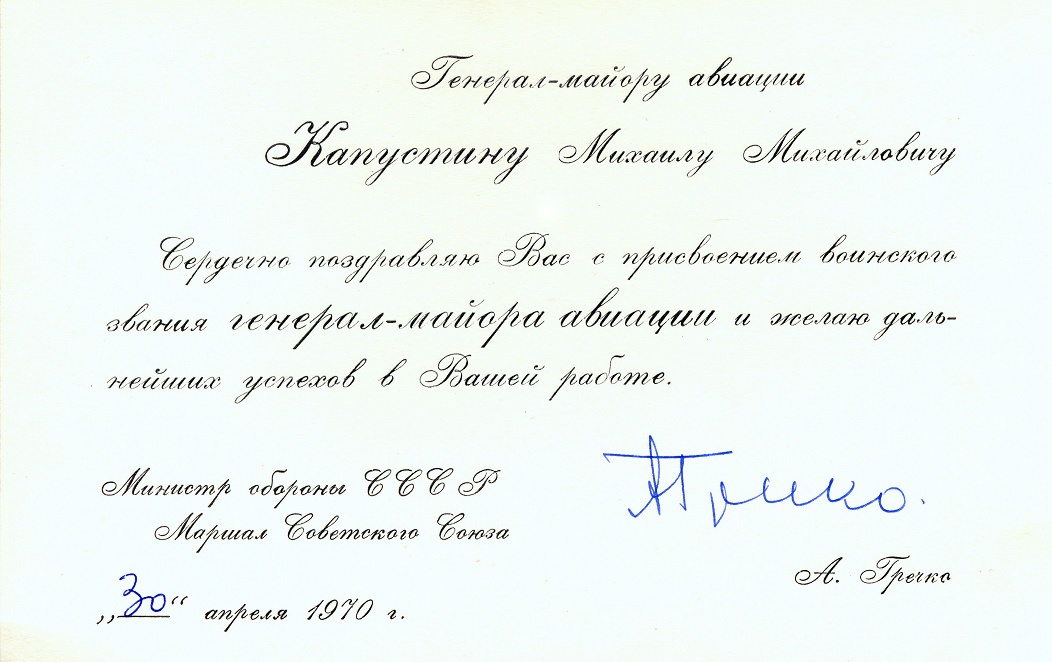 Генерал-майору авиации
Капустину Михаилу Михайловичу
Сердечно поздравляю Вас с присвоением воинского
звания генерал-майора авиации и желаю даль-
нейших успехов в Вашей работе.
Министр обороны СССР
Маршал Советского Союза
АГречко.
А. Гречко
„30“ апреля 1970 г.